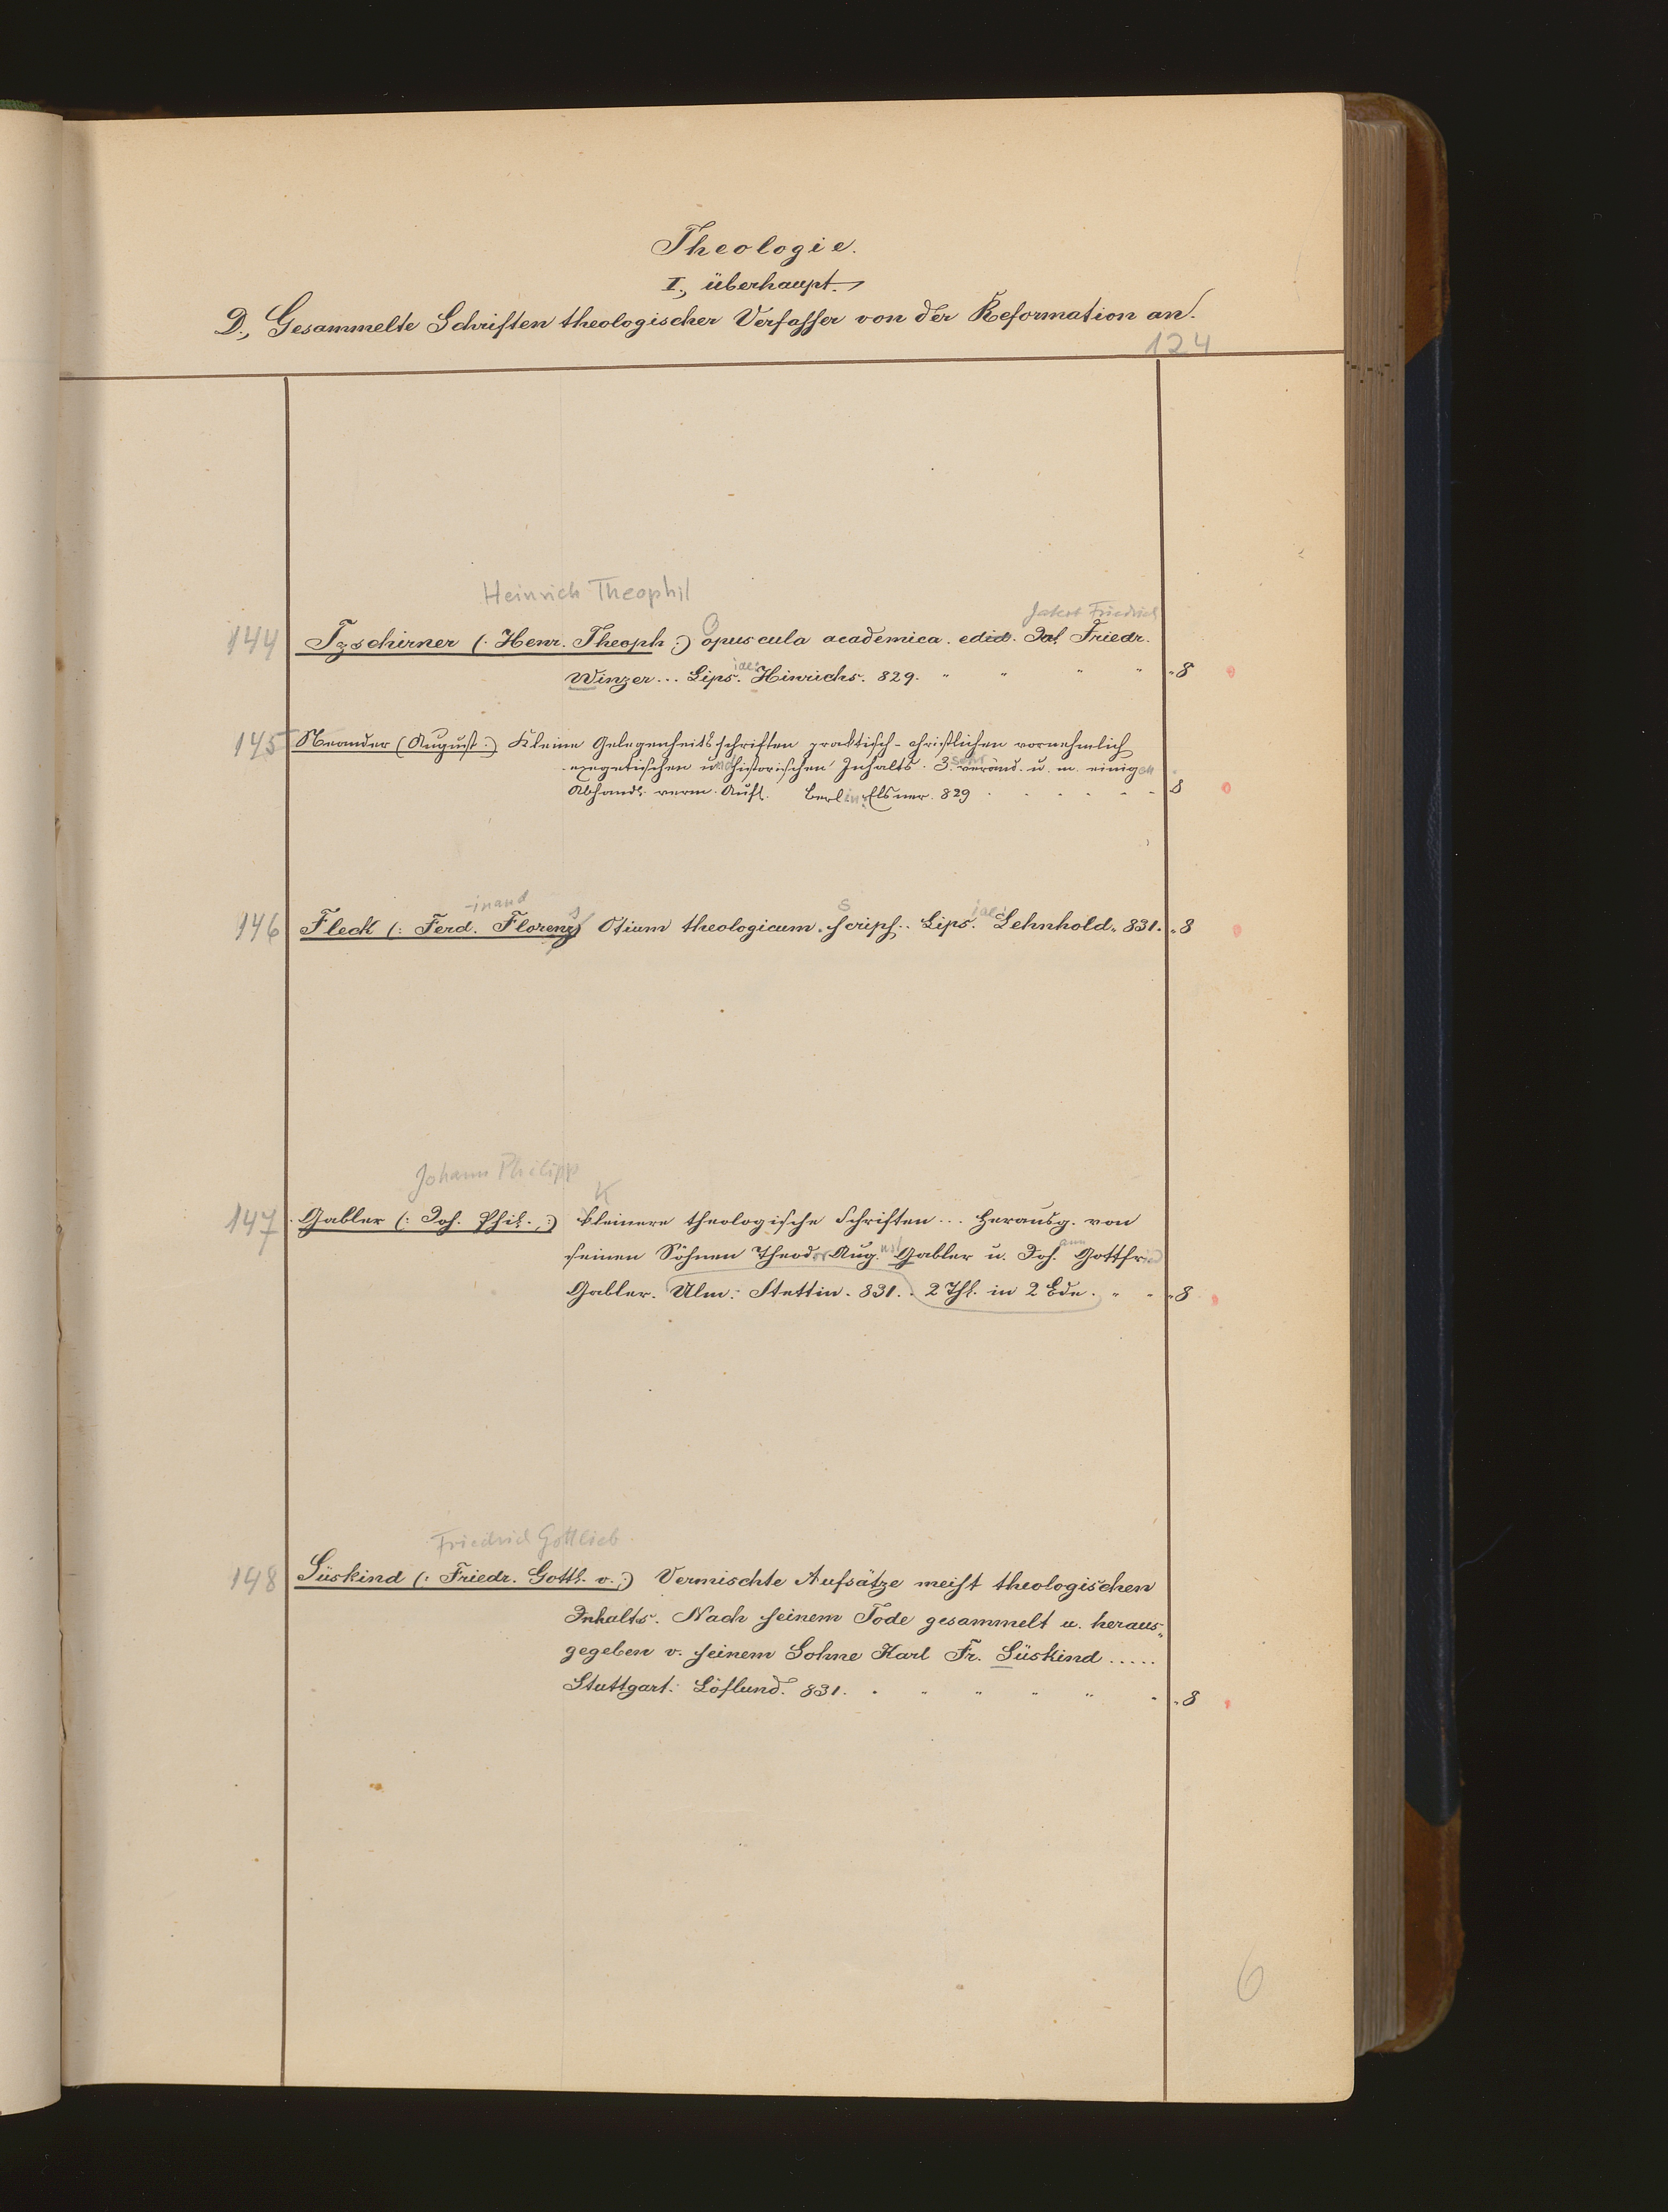 Theologie.
I., überhaupt.
D., Gesammelte Schriften theologischer Verfasser von der Reformation an.
124
Heinrich Theophil
Jakob Friedrich
144 Tzschirner (: Henr. Theoph :) Opuscula academica. edid. Jak. Friedr.
Winzer... Lips.iae: Hinrichs. 829. " " " " 8
145 Neander (August :) Kleine Gelegenheitsschriften praktisch-christlichen vornehmlich
exegetischen und historischen Inhalts. 3. sehr veränd. u. m. einigen
Abhandl. verm. Aufl. Berlin: Elsner. 829 8
-inand
146 Fleck (: Ferd. Florens) Otium theologicum. Scrips.. Lips.iae: Lehnhold. 831. 8
Johann Philipp
K
147 Gabler (: Joh. Phil. :) kleinere theologische Schriften... Herausg. von
seinen Söhnen Theodor August Gabler u. Johann Gottfried
Gabler. Ulm: Stettin. 831. 2 Thl. in 2 Bde. " " 8
Friedrich Gottlieb
148 Süskind (: Friedr. Gottl. v. :) Vermischte Aufsätze meist theologischen
Inhalts. Nach seinem Tode gesammelt u. heraus-
gegeben v. seinem Sohne Karl Fr. Süskind .....
Stuttgart: Löflund. 831. " " " " " 8
6